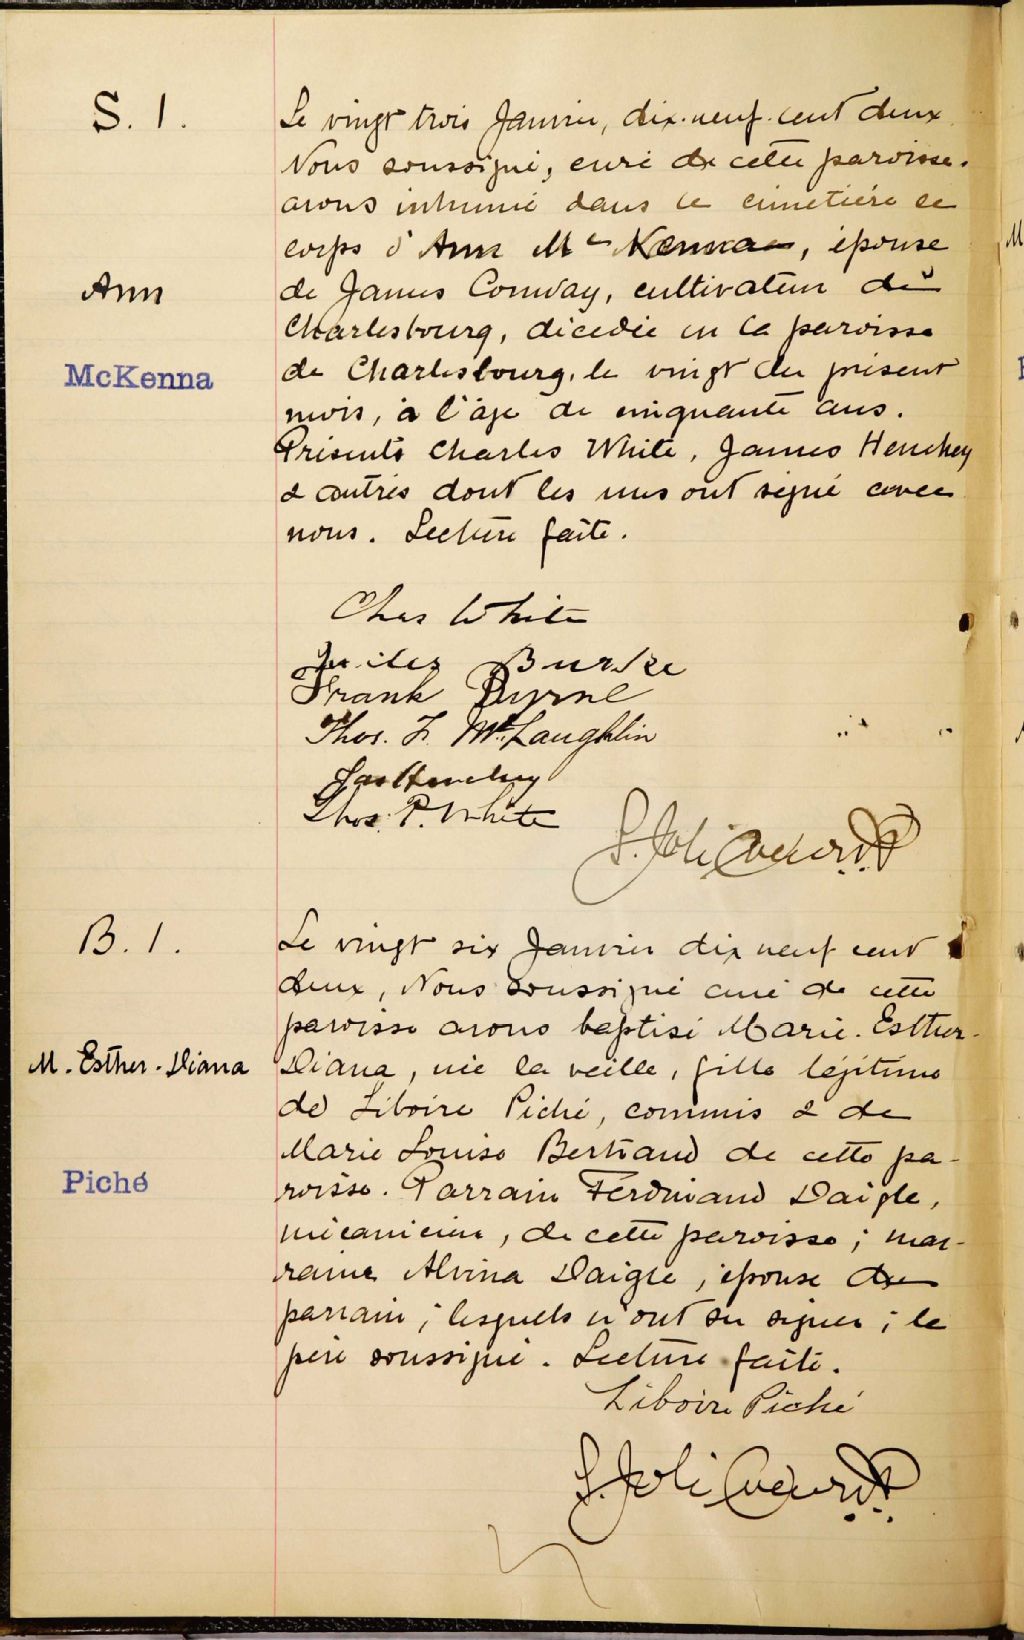 S. 1.
Le vingt trois Janvier, dix-neuf-cent deux
Nous soussigné, curé de cette paroisse,
avons inhumé dans le cimetière le
corps d'Ann McKenna, épouse
Ann
de James Conway, cultivateur de
Charlesbourg, décédée en la paroisse
McKenna
de Charlesbourg, le vingt du présent
mois, à l'âge de cinquante ans.
Présents Charles White, James Henchey
& autres dont les uns ont signé avec
nous. Lecture faite.
Chas White
Burke
Frank Byrne
Thos. F. McLaughlin
Jas Henchey
Thos. P. White
S. JoliCoeur Ptr
B. 1.
Le vingt six Janvier dix neuf cent
deux, Nous soussigné curé de cette
paroisse avons baptisé Marie-Esther-
M. Esther-Diana
Diana, née la veille, fille légitime
de Liboire Piché, commis & de
Marie Louise Bertrand de cette pa-
Piché
roisse. Parrain Ferdinand Daigle,
mécanicien, de cette paroisse; mar-
raine Alvina Daigle, épouse du
parrain; lesquels n'ont su signer; le
père soussigné. Lecture faite.
Liboire Piché
S. JoliCoeur Ptr